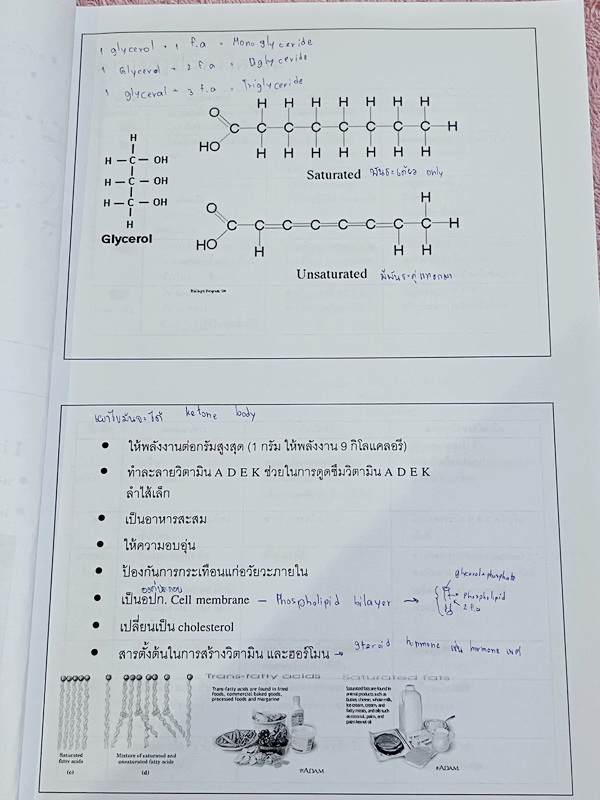 1 glycerol + 1 f.a = Monoglyceride
1 Glycerol + 2 f.a = Diglyceride
1 glyceral + 3 f.a = Triglyceride
H H H H H H H
O
C C C C C C C C H
HO
H H H H H H H
Saturated พันธะเดี่ยว only
H
H — C — OH
H — C — OH
H — C — OH
H
Glycerol
H
O
C C C C C C C C H
HO
H H H
Unsaturated มีพันธะคู่
เผาไขมันจะได้ ketone body
• ให้พลังงานต่อกรัมสูงสุด (1 กรัม ให้พลังงาน 9 กิโลแคลอรี)
• ทำละลายวิตามิน A D E K ช่วยในการดูดซึมวิตามิน A D E K
ลำไส้เล็ก
• เป็นอาหารสะสม
• ให้ความอบอุ่น
• ป้องกันการกระเทือนแก่อวัยวะภายใน
องค์ประกอบ
• เป็นอปก. Cell membrane – Phospholipid bilayer →
glycerol+phosphate
Phospholipid
2 f.a
• เปลี่ยนเป็น cholesterol
• สารตั้งต้นในการสร้างวิตามิน และฮอร์โมน → steroid hormone เช่น hormone เพศ
Trans-fatty acids
Trans-fatty acids are found in fried
foods, commercial baked goods,
processed foods and margarine
Saturated fats
Saturated fats are found in
animal products such as
butter, cheese, whole milk,
ice cream, cream, and
fatty meats, and oils such
as coconut, palm, and
palm kernel oil
Saturated
fatty acids
(c)
Mixture of saturated and
unsaturated fatty acids
(d)
ADAM.
ADAM.